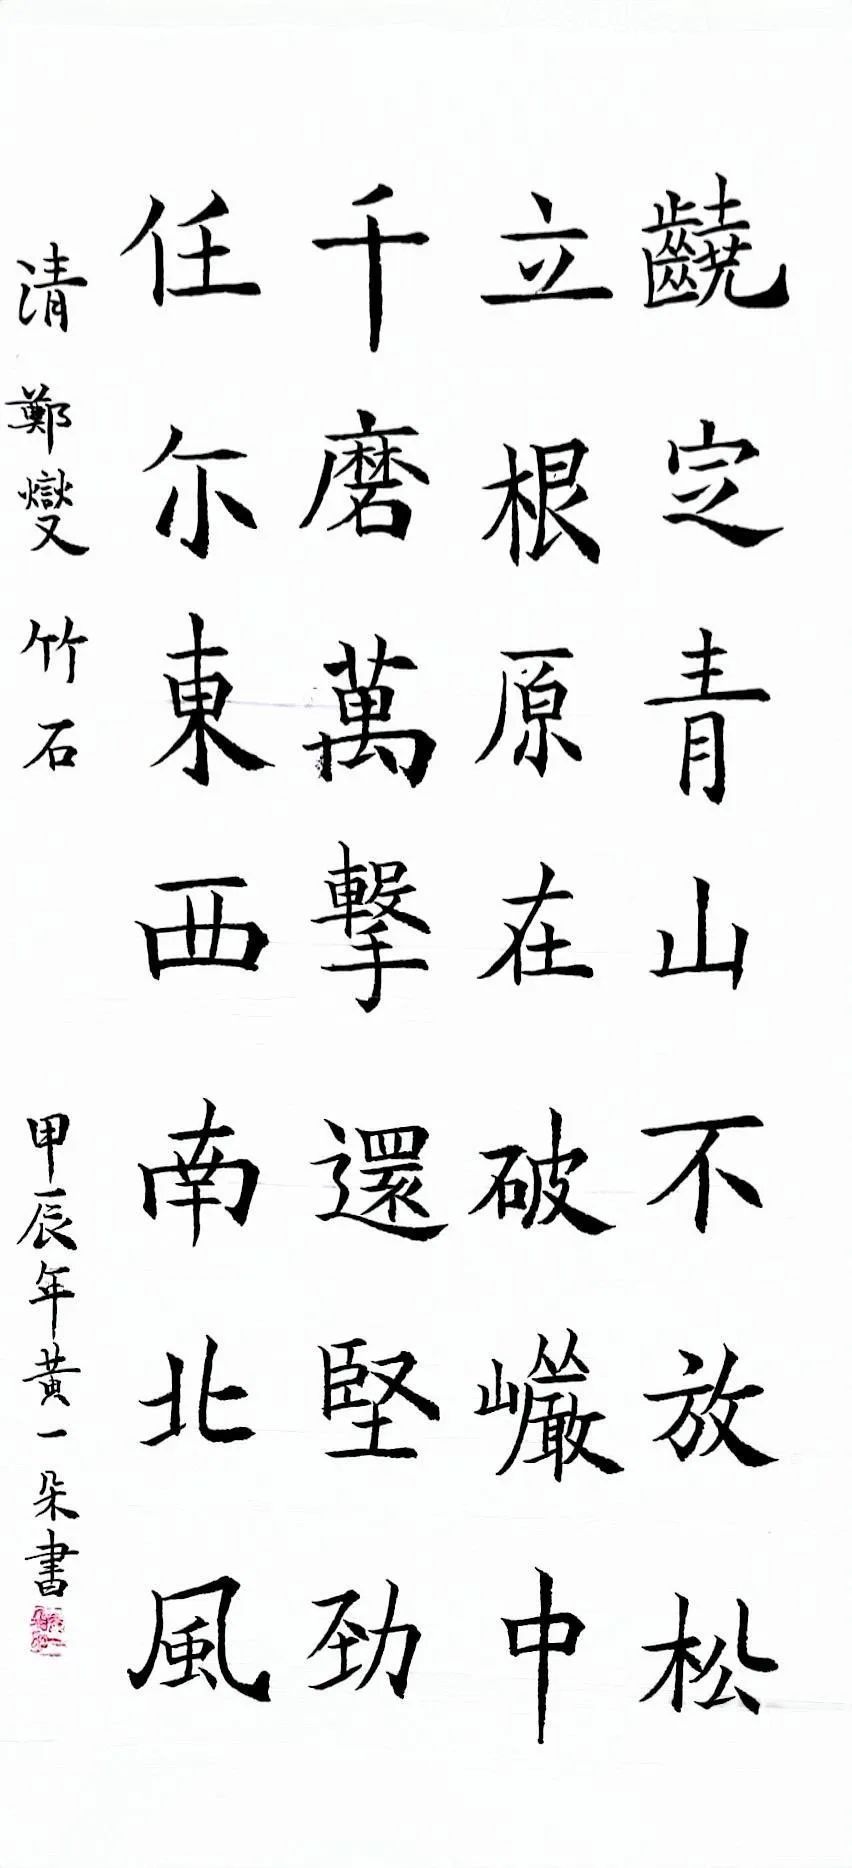 䶧定青山不放松
立根原在破巗中
千磨萬擊還堅勁
任尔東西南北風
清 鄭燮 竹石 甲辰年黄一朵書